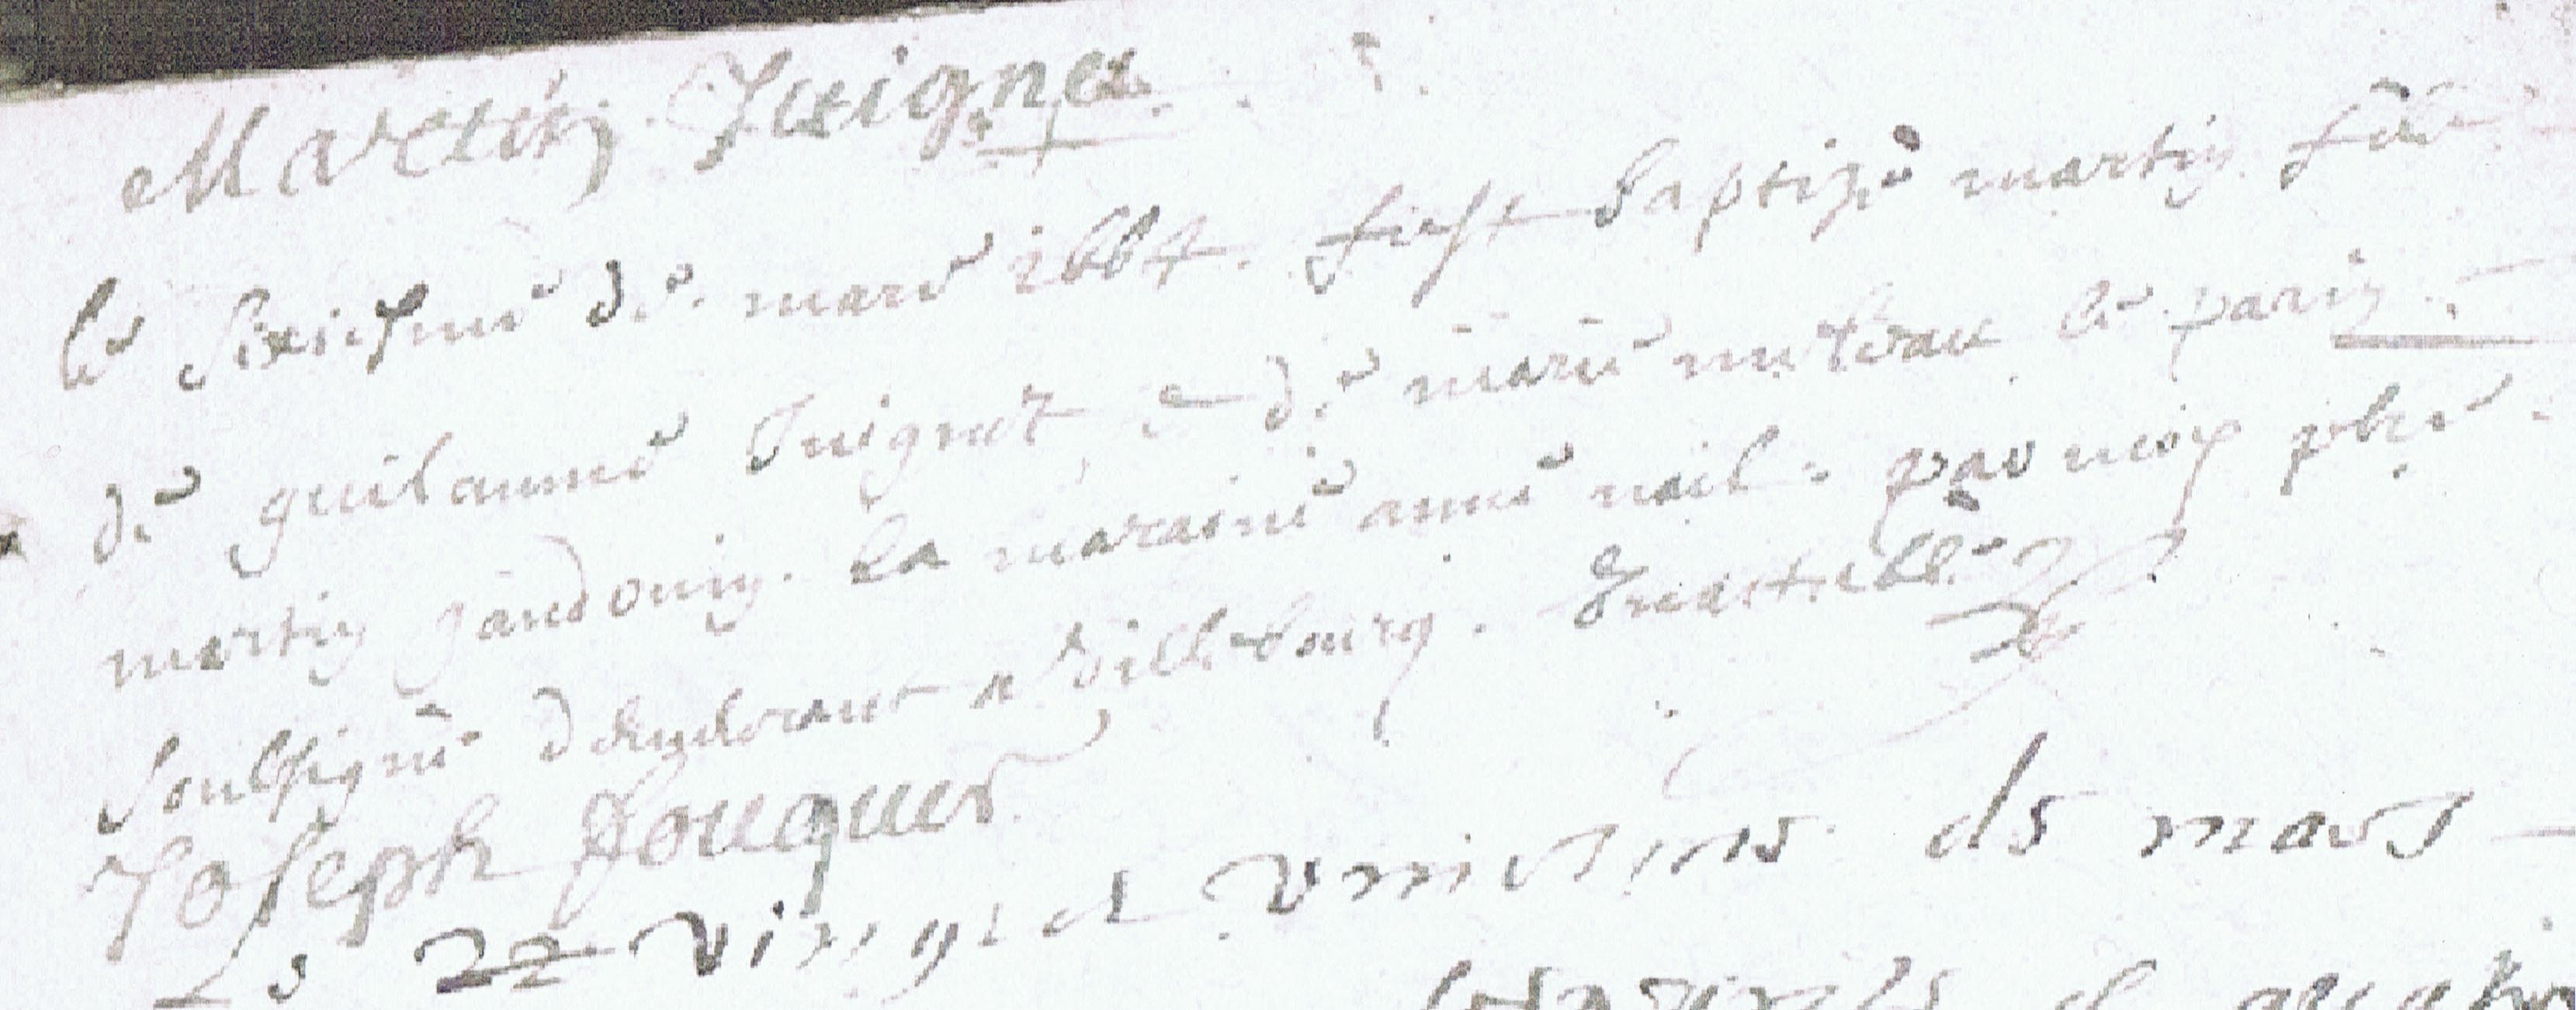 Martin Juignet
le sixiesme de mars 1664 fust baptizé martin filz
de guilaume Juignet e de marie le parin
martin gaudouin. la maraine anne noil par moy pbre
soulsigné demeurant a villebourg.
Joseph fouquer
Le 22 vingt et uniesme de mars